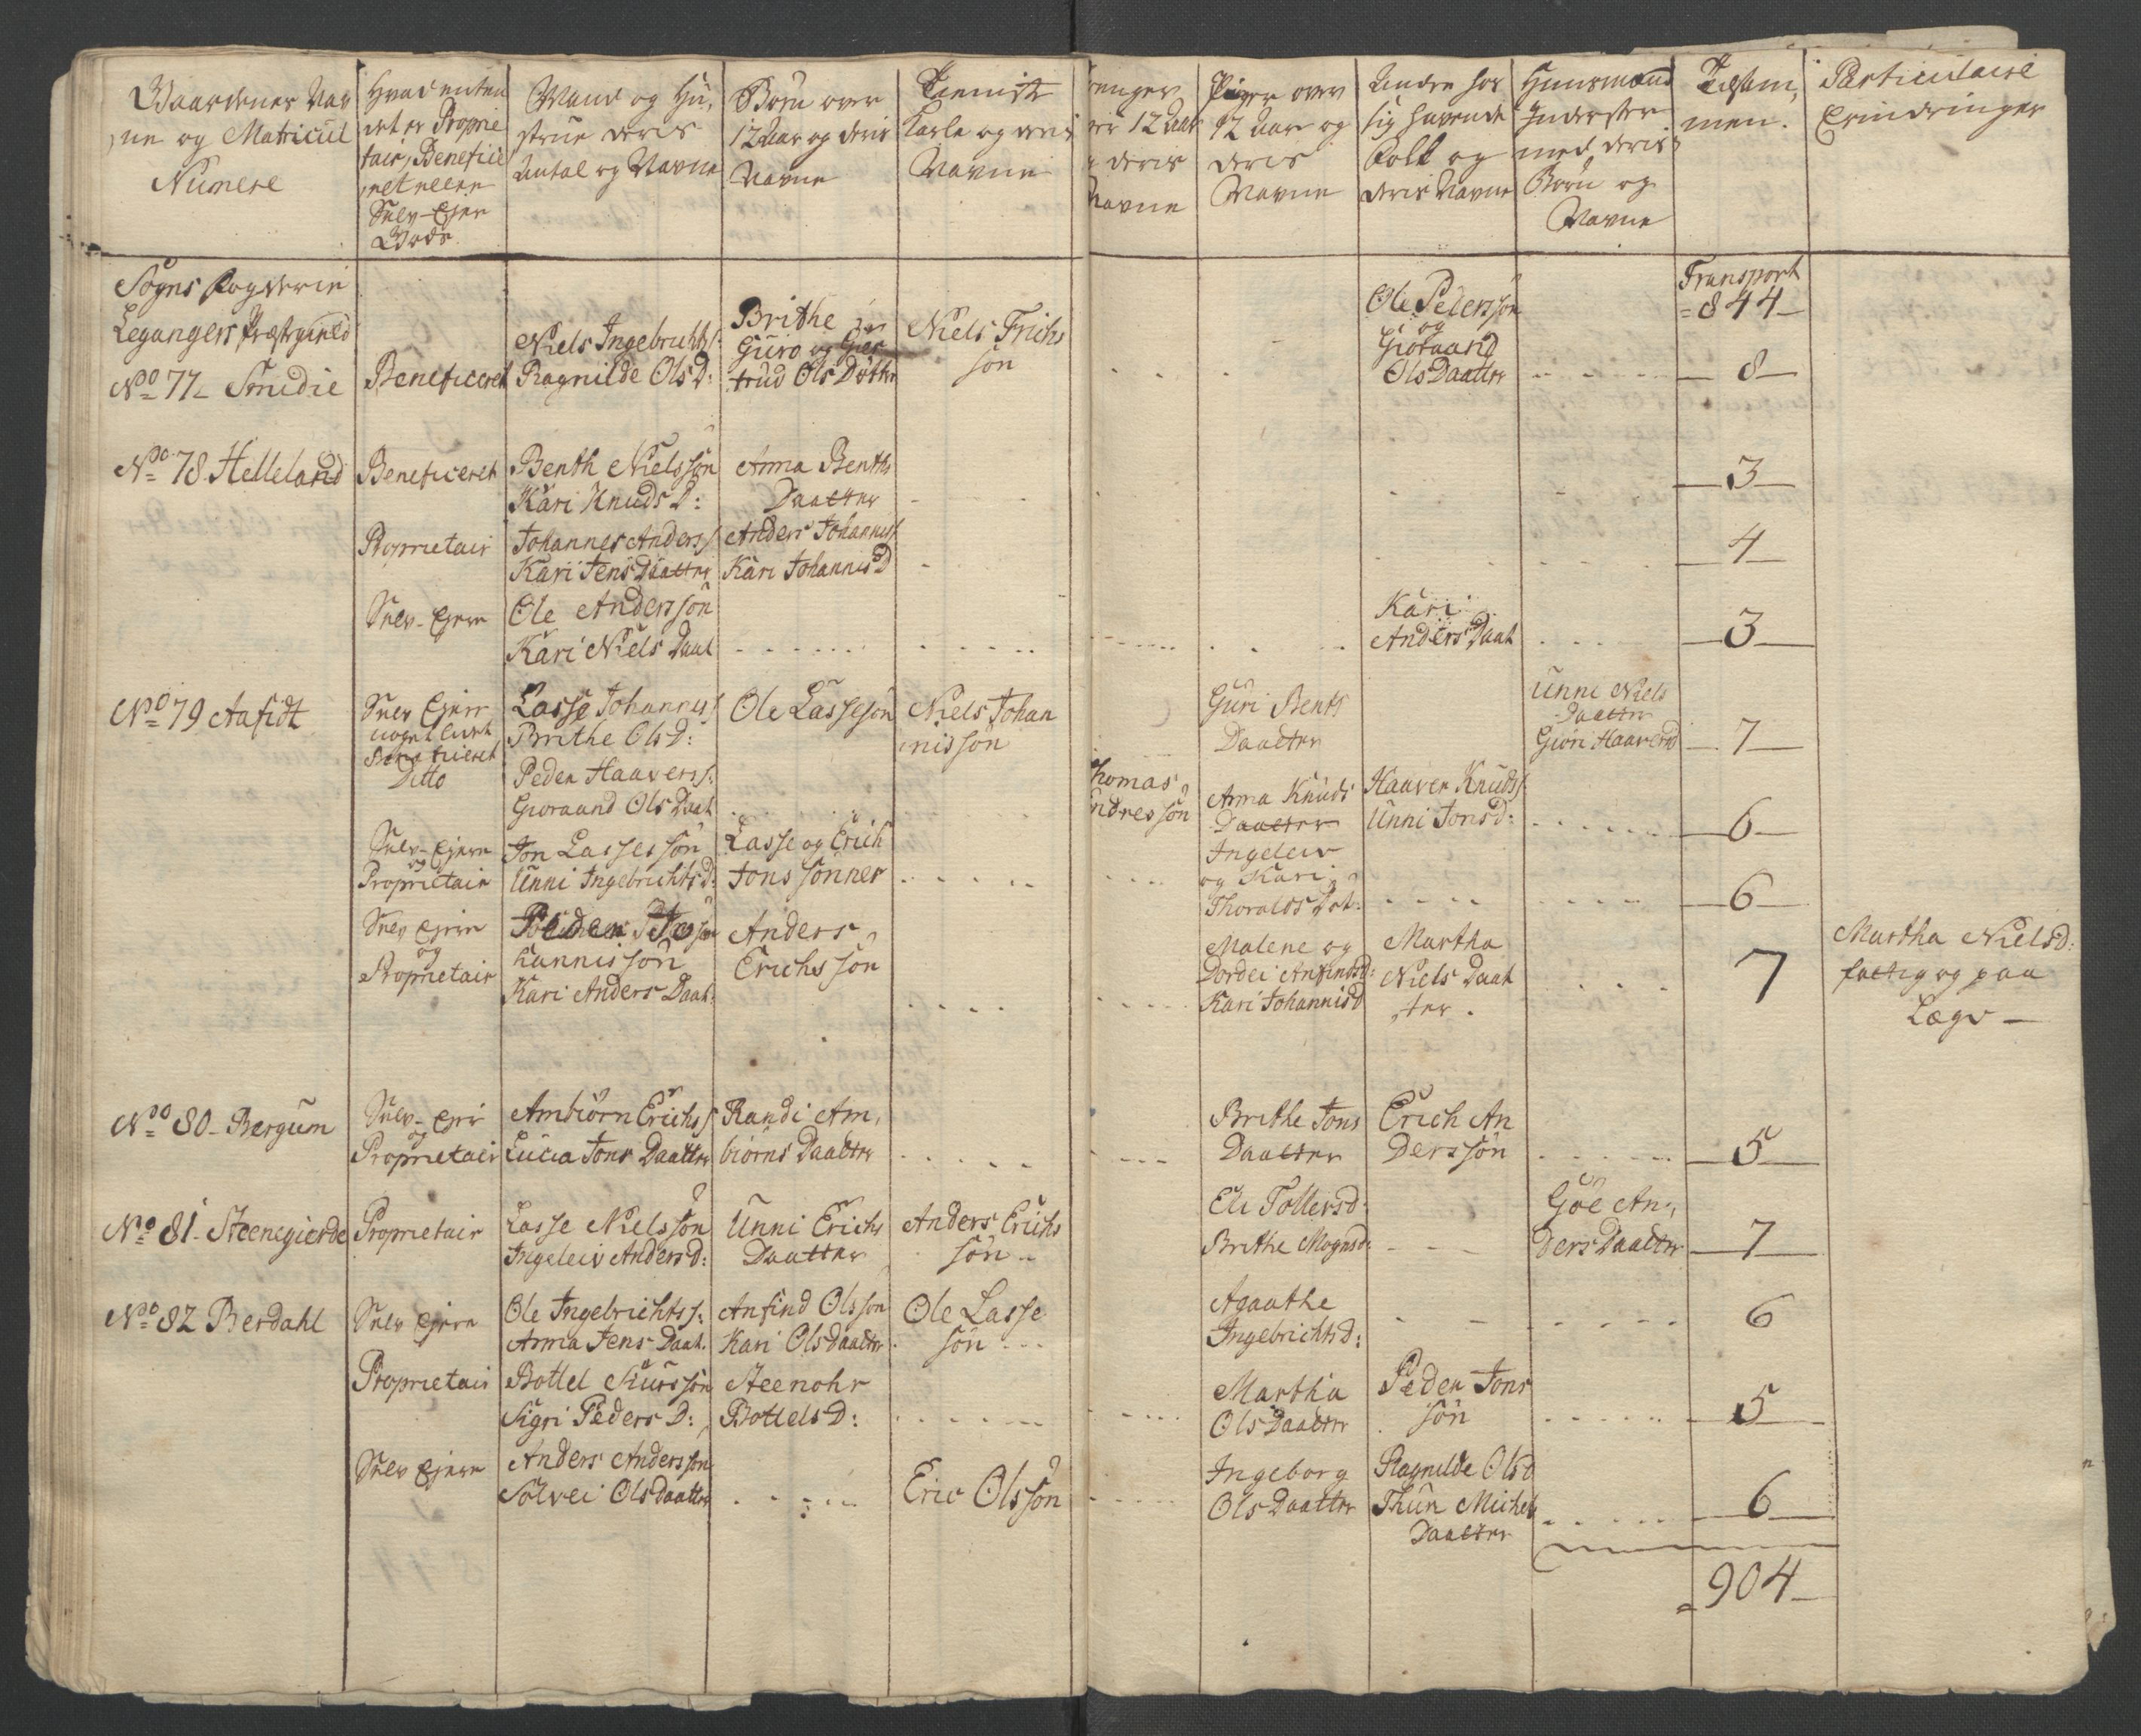 Gaardenes Nav
ne og Matricul
Numere
Hvad enten
det er Proprie
tair, Benefice
ret eller
Selv-Ejer
Gods
Mand og Hu,
strue deris
Antal og Navne
Børn over
12 Aar og deris
Navne
Tienniste
Karle og deris
Navne
renger
ver 12 Aar
deris
Navne
Piger over
12 Aar og
deris
Navne
Andre hos
sig havende
Folk og
deris Navne
Huusmænd
Inderster
med deris
Børn og
Navne
Tilsam,
men.
Particulaire
Erindringer
Sogns Fogderie
Leganger Præstegield
Transport
844
No 77 Smidie
Beneficeret
Niels Ingebrichts
Ragnilde Ols D:
Brithe
Guro og Gier
trud Ols Døttr
Niels Erichs
søn
Ole Pedersøn
og
Gioraand
Ols Daatter
8
No 78 Helleland
Beneficeret
Benth Nielssøn
Kari Knuds D:
Anna Benths
Daatter
3
Proprietair
Johannes Anders
Kari Jens Daatter
Anders Johannis
Kari Johannis D
4
Selv-Ejere
Ole Anderssøn
Kari Niels Daat
Kari
Anders Daat
3
No 79 Aafidt
Selv Ejere
noget lidet
Beneficeret
Lasse Johannis
Brithe Ols D:
Ole Lassesøn
Niels Johan
nissøn
Guri Bents
Daatter
Unni Niels
Daatter
Giøri Haaversd
7
Ditto
Peder Haavers:
Gioraand Ols Daat
Thomas
Endressøn
Anna Knuds
Daatter
Haaver Knuds
Unni Jonsd:
6
Selv-Ejere
og
Proprietair
Jon Lassessøn
Unni Ingebrichts D:
Lasse og Erich
Jons sønner
Ingeleiv
og Kari
Thoralds Dot:
6
Selv Ejere
og
Proprietair
Peder Jo
hannissøn
Kari Anders Daat:
Anders
Erichssøn
Malene og
Dordei Anfindsd:
Kari Johannisd
Martha
Niels Daat
ter.
7
Martha Nielsd:
fattig og paa
Lægd
No 80 Bergum
Selv-Ejer
og
Proprietair
Ambiørn Erichs
Lucia Jons Daatter
Randi Am,
biørns Daatter
Brithe Jons
Daatter
Erich An
derssøn
5
No 81 Steenegierde
Proprietair
Lasse Nielssøn
Ingeleiv Anders D:
Unni Erichs
Daatter
Anders Erichs
søn
Eli Tollersd:
Brithe Mognsd:
Goe An,
ders Daatter
7
No 82 Berdahl
Selv Ejere
Ole Ingebrichts:
Anna Jens Daat.
Anfind Olssøn
Kari Ols daatter
Ole Lasse
søn
Agaathe
Ingebrichts D:
6
Proprietair
Bottel Siurssøn
Sigri Peders D:
Steenohr
Bottels D:
Martha
Ols Daatter
Peder Jons
søn
5
Selv Ejere
Anders Anderssøn
Sølvei Ols daatter
Eric Olssøn
Ingeborg
Ols Daatter
Ragnilde Ols D
Thun Michels
Daatter
6
904